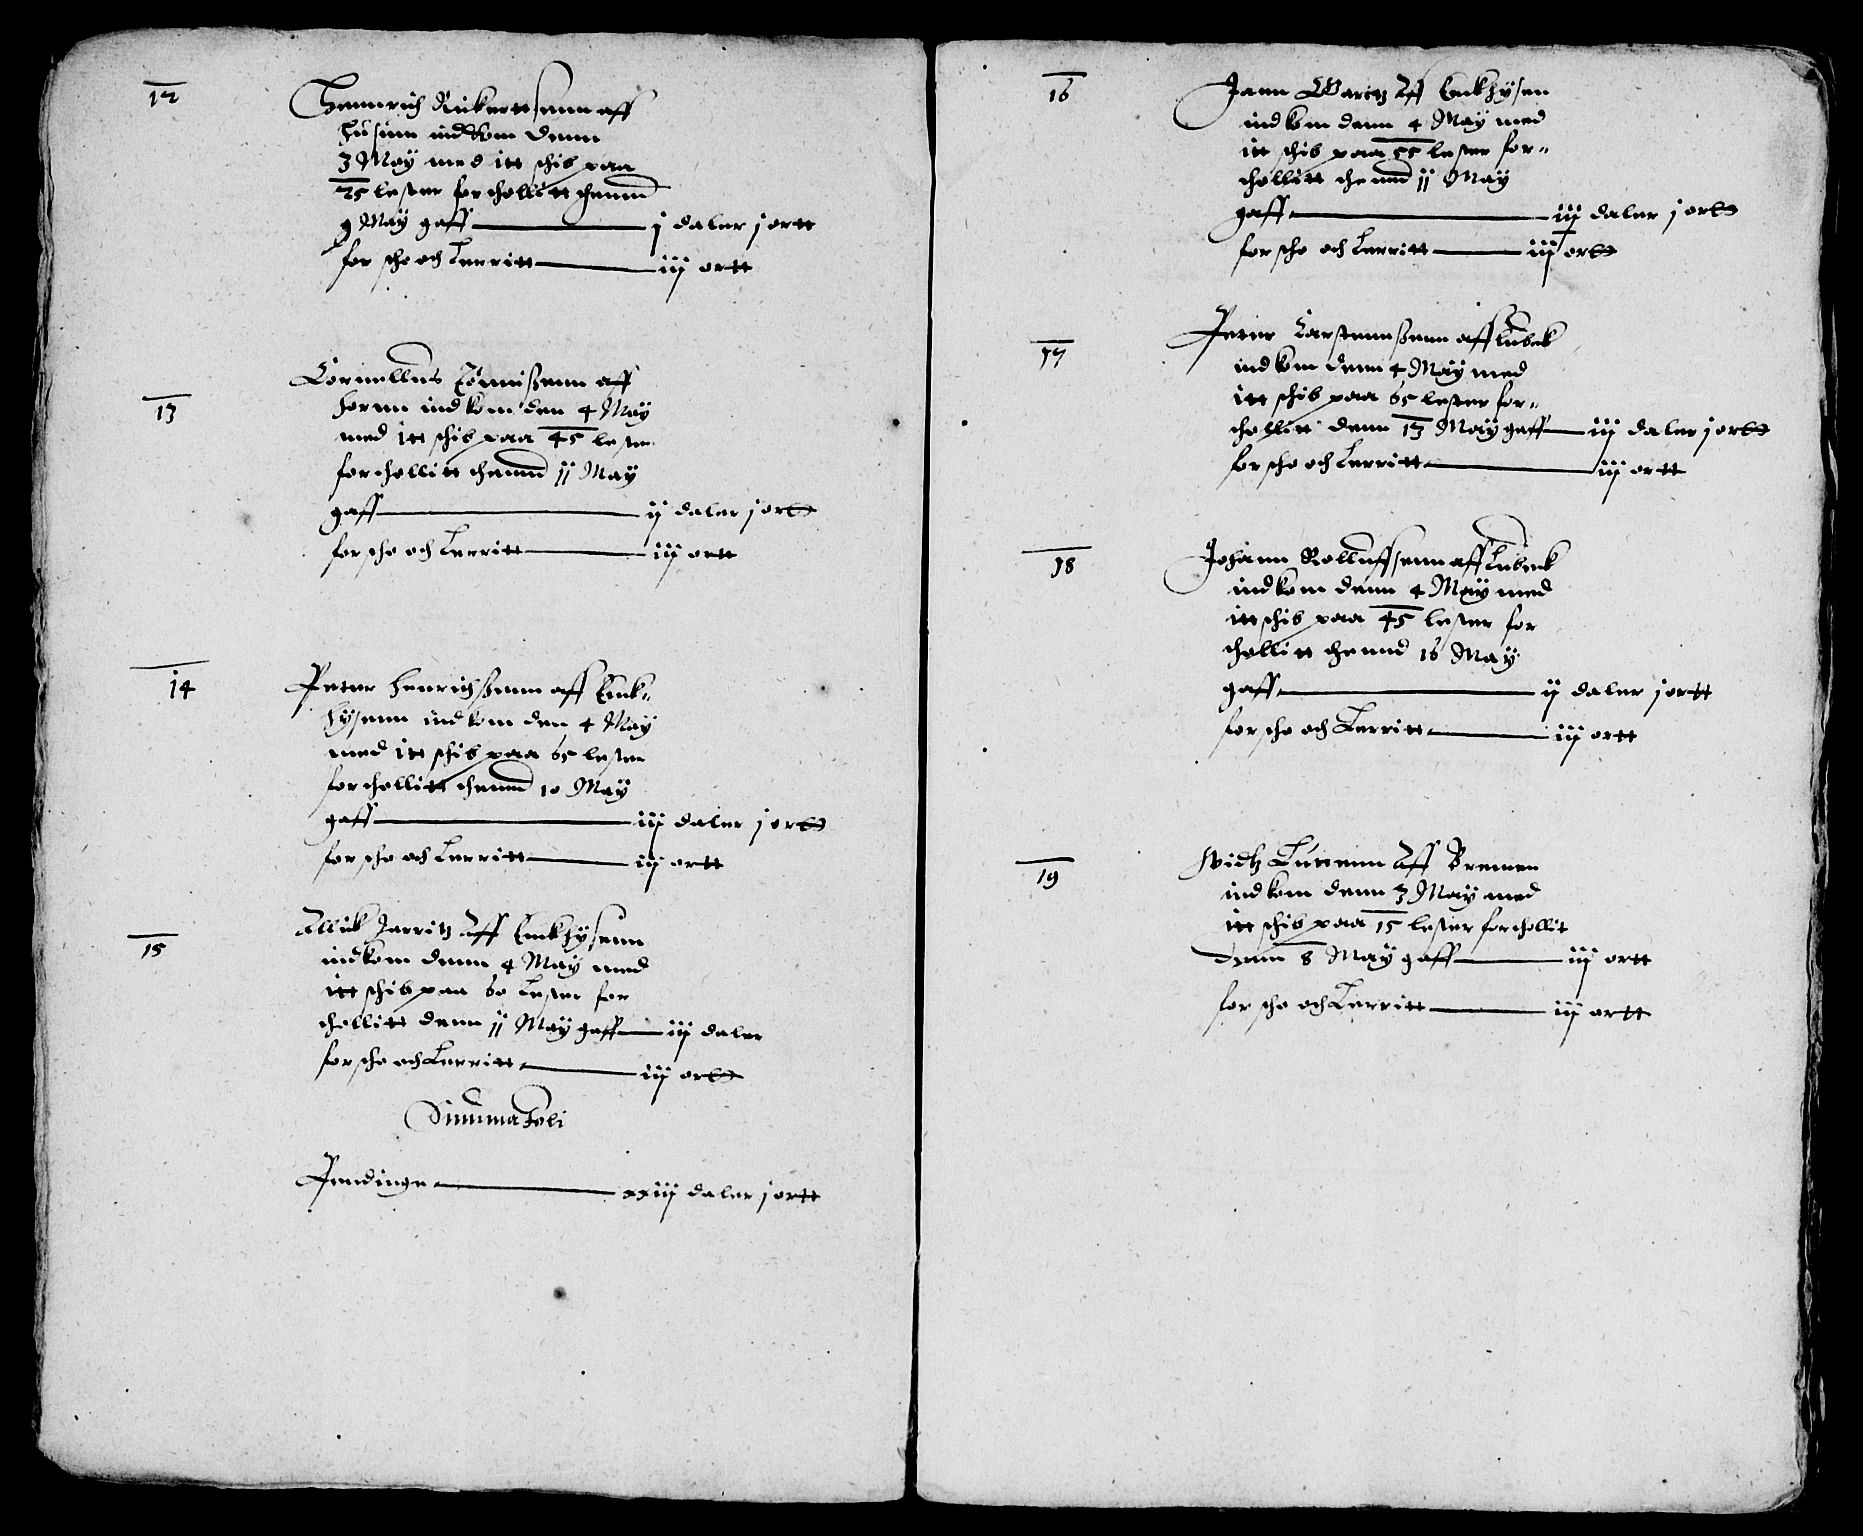 12
Hennrich Rickerttsenn aff
Husum indkom denn
3 May med itt schib paa
25 lester forchollitt thennd
9 May gaff — j daler j ortt
for scho och Lerritt — iij ortt
13
Cornellus Tönnißenn aff
Hornn indkom den 4 May
med itt schib paa 45 lester
forchollitt thennd 11 May
gaff — ij daler j ortt
for scho och Lerritt — iij ortt
14
Peter Henrichßenn aff Enck-
hysenn indkom den 4 May
med itt schib paa 65 lester
forchollitt thennd 10 May
gaff — iij daler j ortt
for scho och Lerritt — iij ortt
15
Allick Jarritz Aff Enckhysenn
indkom denn 4 May med
itt schib paa 60 Lester for
chollitt denn 11 May gaff — iij daler
for scho och Lerritt — iij ortt
Summa foli
Pendinge — xxiij daler j ortt
16
Jann Aff Enckhysen
indkom denn 4 May med
itt schib paa 55 lester for-
chollitt thennd 11 May
gaff — iij daler j ortt
for scho och Lerritt — iij ortt
17
Peter Carstennßenn aff Lubek
indkom denn 4 May med
itt schib paa 65 lester for-
chollitt denn 13 May gaff — iij daler j ortt
for scho och Lerritt — iij ortt
18
Johann Rolluffsenn aff Lubeck
indkom denn 4 May med
itt schib paa 45 lester for
chollitt thennd 16 May
gaff — ij daler j ortt
for scho och Lerritt — iij ortt
19
Aff Bremen
indkom denn 3 May med
itt schib paa 15 lester forchollit
denn 8 May gaff — iij ortt
for scho och Lerritt — iij ortt